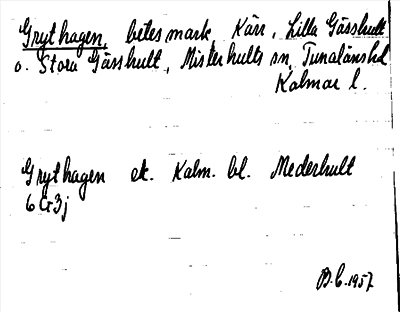 Grythagen, betesmark, Kärr, Lilla Gässhult
o. Stora Gässhult, Misterhults sn, Tunaläns hd
Kalmar l.
Grythagen ek. Kalm. bl. Mederhult
6G3j
B.C. 1957